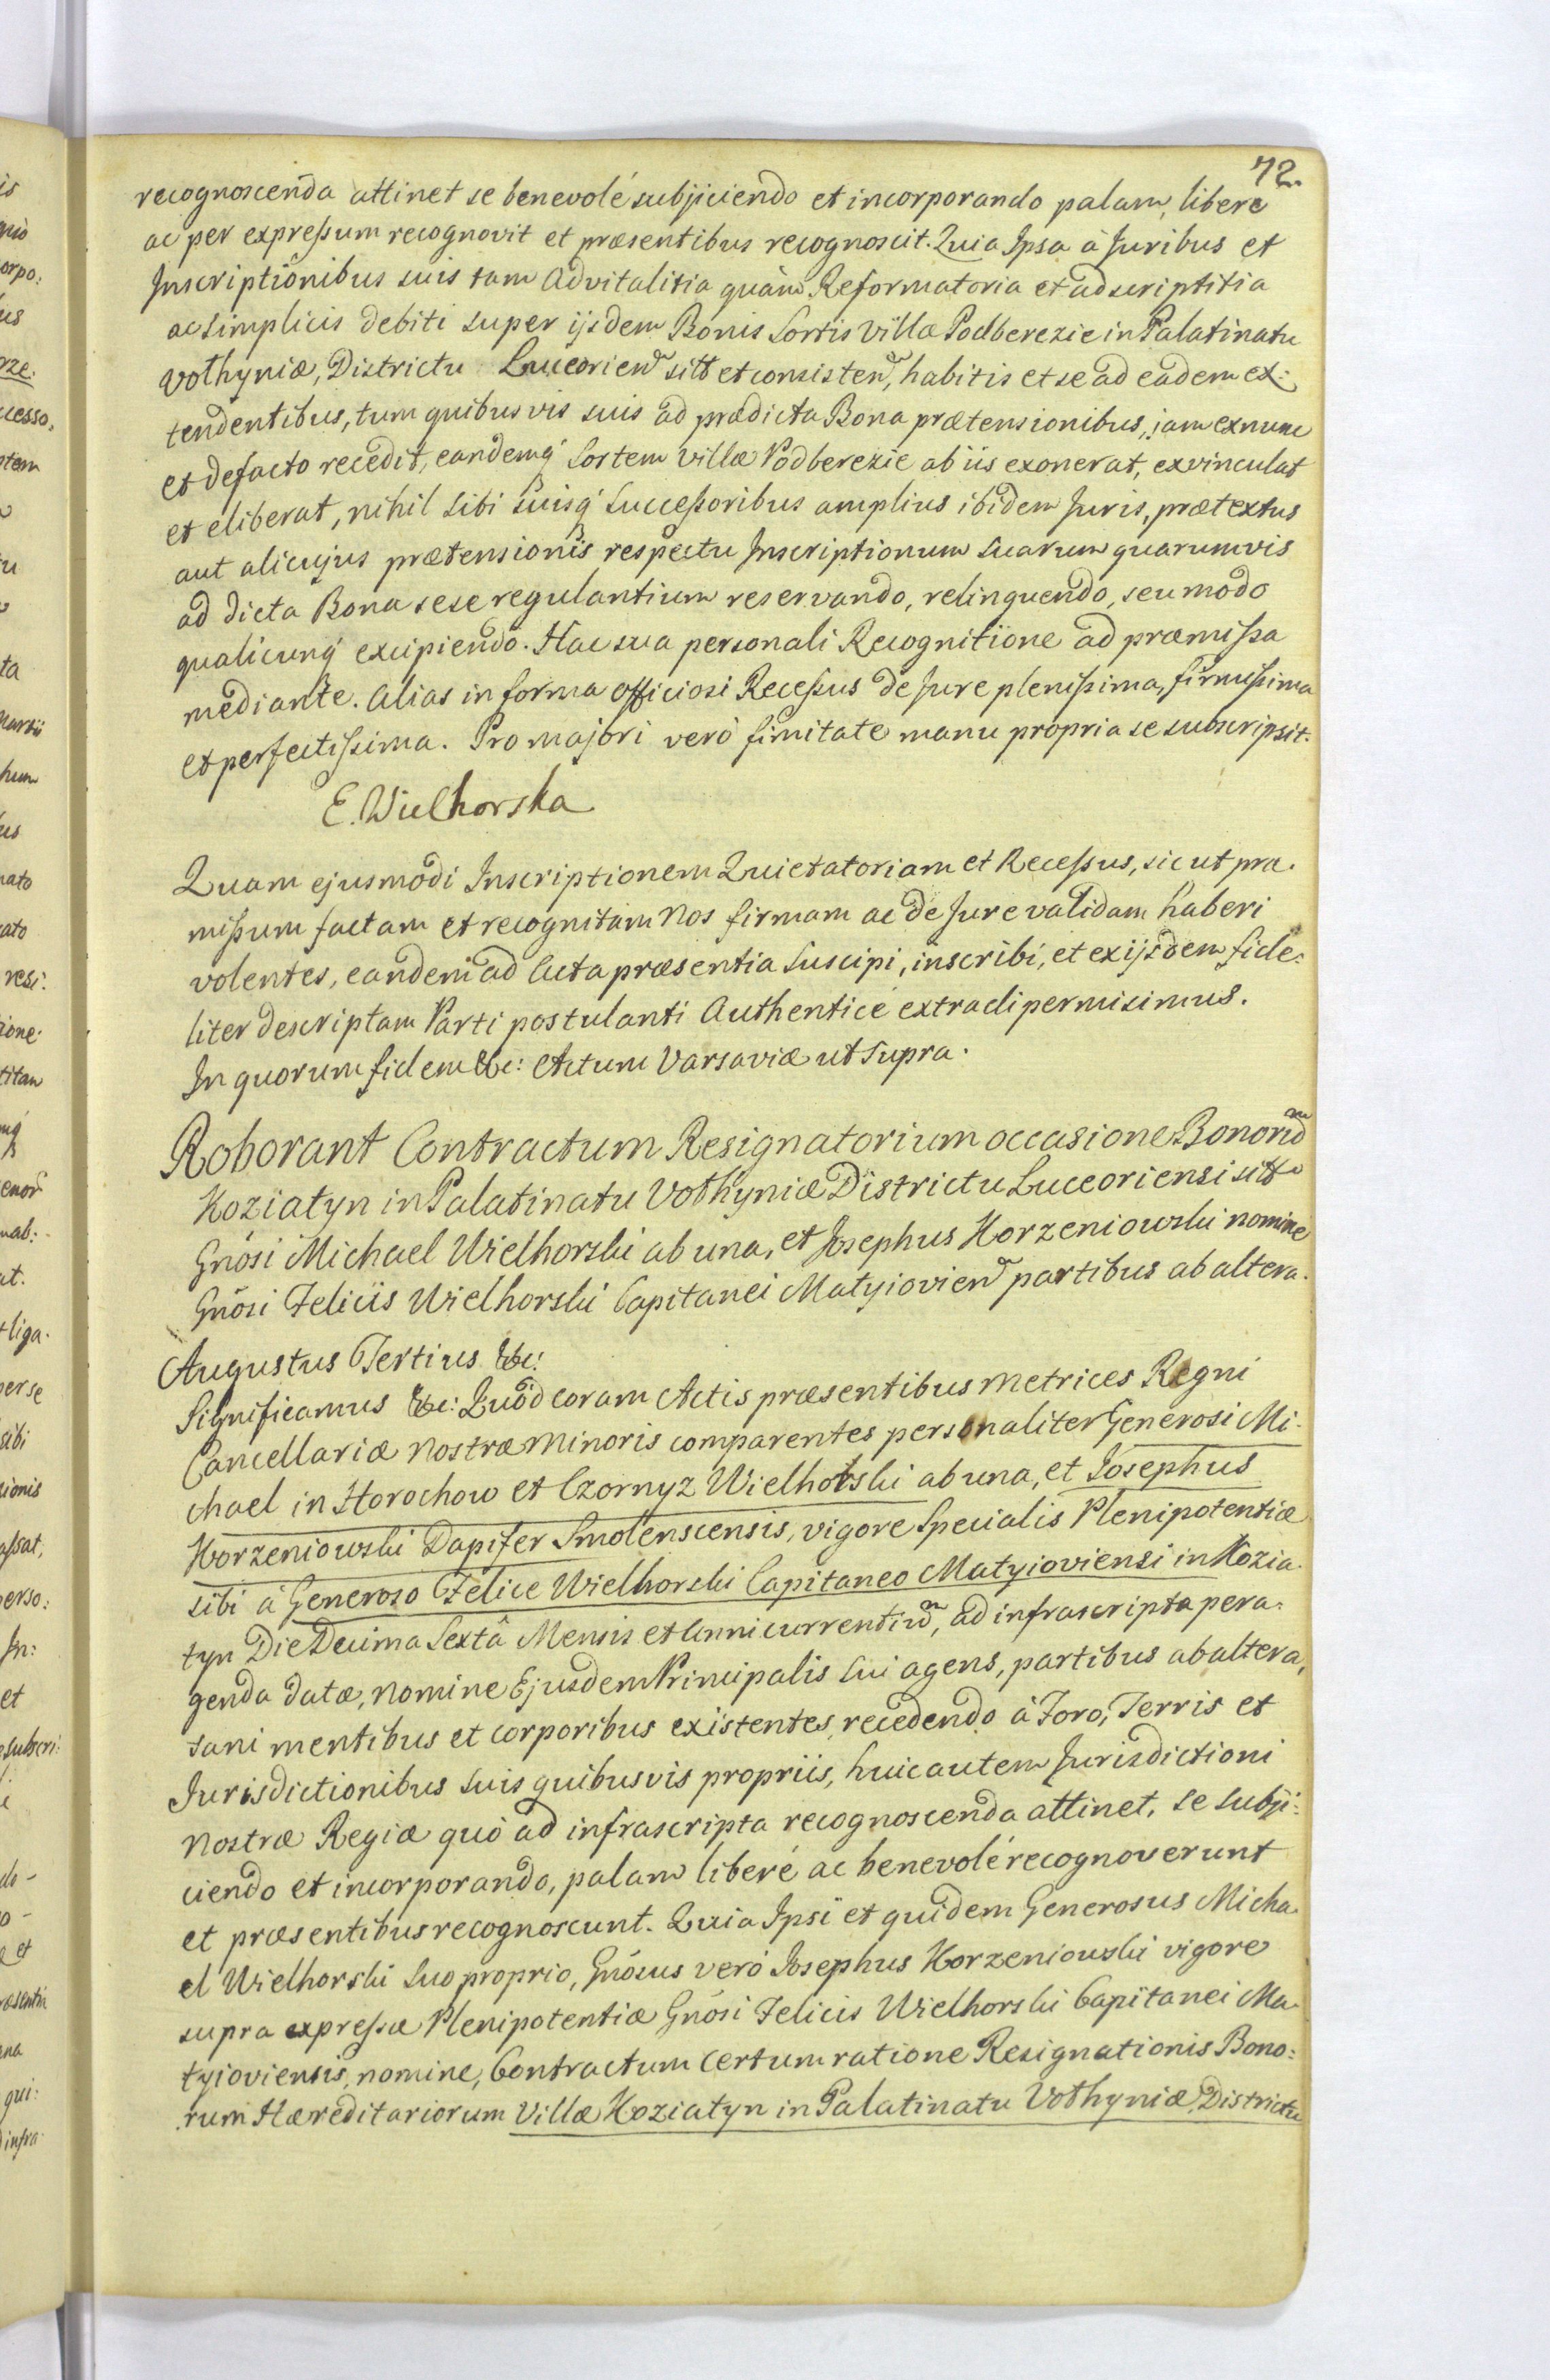 72.
recognoscenda attinet se benevolé subjiciendo et incorporando palam, libere
ac per expreſsum recognovit et præsentibus recognoscit. Quia Ipsa à Juribus et
Inscriptionibus suis tam Advitalitia quàm Reformatoria et adscriptitia
ac simplicis debiti super ijsdem Bonis Sortis Villæ Podberezie in Palatinatu
Volhyniæ, Districtu Luceorien̄ sitt et consisten̄, habitis et se ad eadem ex:
tendentibus, tum quibusvis suis ad prædicta Bona prætensionibus, jam exnunc
et defacto recedit, eandemq́ Sortem villæ Podberezie ab iis exonerat, exvinculat
et eliberat, nihil sibi suisq́ Succeſsoribus amplius ibidem Juris, prætextus
aut alicujus prætensionis respectu Inscriptionum suarum quarumvis
ad dicta Bona sese regulantium reservando, relinquendo, seu modo
qualicunq́ excipiendo. Hac sua personali Recognitione ad præmiſsa
mediante. Alias in forma officiosi Receſsus de Jure pleniſsima, firmiſsima
et perfectiſsima. Pro majori veró fimitate manu propria se subscripsit.
E. Wielhorska
Quam ejusmodi Inscriptionem Quietatoriam et Receſsus, sic ut præ.
miſsum factam et recognitam Nos firmam ac de Jure validam haberi
volentes, eandem ad Acta præsentia suscipi, inscribi, et ex ijsdem fide:
liter descriptam Parti postulanti Authenticé extradi permisimus.
In quorum fidem &c: Actum Varsaviæ ut supra.
Roborant Contractum Resignatorium occasione Bonorū
Koziatyn in Palatinatu Volhyniæ Districtu Luceoriensi sitt
Gn̄osi Michael Wielhorski ab una, et Josephus Korzeniowski nomine
Gn̄osi Felicis Wielhorski Capitanei Matyiovien̄ partibus ab altera.
Augustus Tertius &c:
Significamus &c: Quód coram Actis præsentibus Metrices Regni
Cancellariæ Nostræ Minoris comparentes personaliter Generosi Mi.
chael in Horochow et Czornyz Wielhorski ab una, et Josephus
Korzeniowski Dapifer Smolenscensis, vigore specialis Plenipotentiæ
sibi à Generoso Felice Wielhorski Capitaneo Matyioviensi in Kozia.
tyn Die Decima Sextâ Mensis et Anni currentiū, ad infrascripta pera:
genda datæ, nomine Ejusdem Principalis sui agens, partibus ab altera,
sani mentibus et corporibus existentes, recedendo à Foro, Terris et
Jurisdictionibus suis quibusvis propriis, huic autem Jurisdictioni
Nostræ Regiæ quò ad infrascripta recognoscenda attinet, se subji:
ciendo et incorporando, palam liberé ac benevolé recognoverunt
et præsentibus recognoscunt. Quia Ipsi et quidem Generosus Micha.
el Wielhorski suo proprio, Gn̄osus veró Josephus Korzeniowski vigore
supra expreſsæ Plenipotentiæ Gn̄osi Felicis Wielhorski Capitanei Ma.
tyioviensis, nomine, Contractum certum ratione Resignationis Bono:
rum Hæreditariorum Villæ Koziatyn in Palatinatu Volhyniæ Districtu